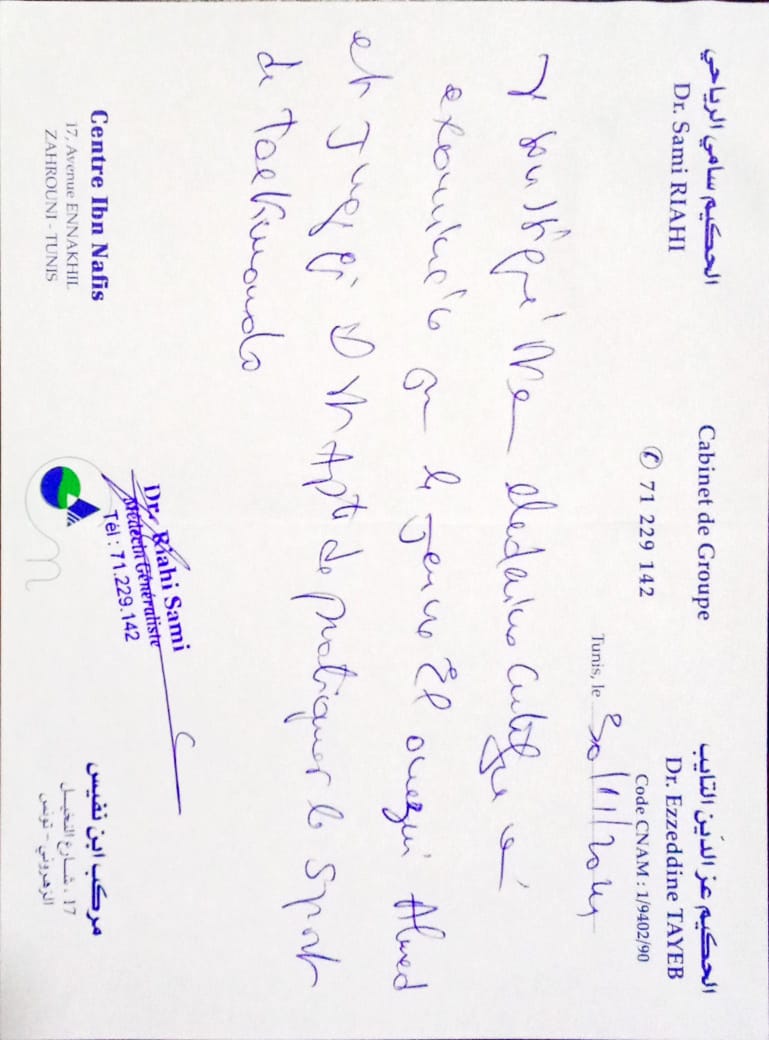 الحكيم سامي الرياحي
Dr. Sami RIAHI
Cabinet de Groupe
✆ 71 229 142
الحكيم عز الدين التايب
Dr. Ezzeddine TAYEB
Code CNAM : 1/9402/90
Tunis, le
soussigné
examiné le jeune El Ahmed
et apte de pratiquer le sport
de Taekwondo
Dr. Riahi Sami
Médecin Généraliste
Tél : 71.229.142
Centre Ibn Nafis
17, Avenue ENNAKHIL
ZAHROUNI - TUNIS
مركب ابن نفيس
17 ، شارع النخيل
الزهروني - تونس